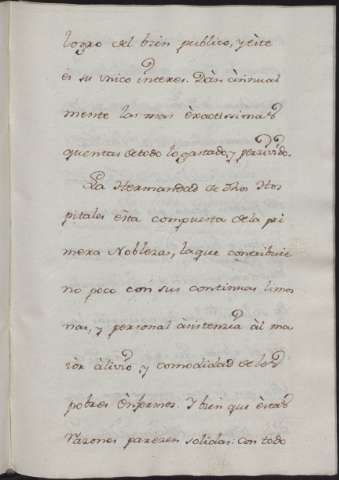 logro del bien publico, y èste
ès su vnico ìnteres. Dàn ànnual
mente las mas èxactissimas
quentas de todo lo gastado, y perzivìdo.
La Hermandad de dhos Hos
pitales èsta compuesta de la pri
mera Nobleza, la que contribuie
no poco con sus continuas limos
nas, y personal àsistenzia àl ma
ior àlivio, y comodidad de los
pobres ènfermos. Y bien que èstas
razones parezen solidas: con todo